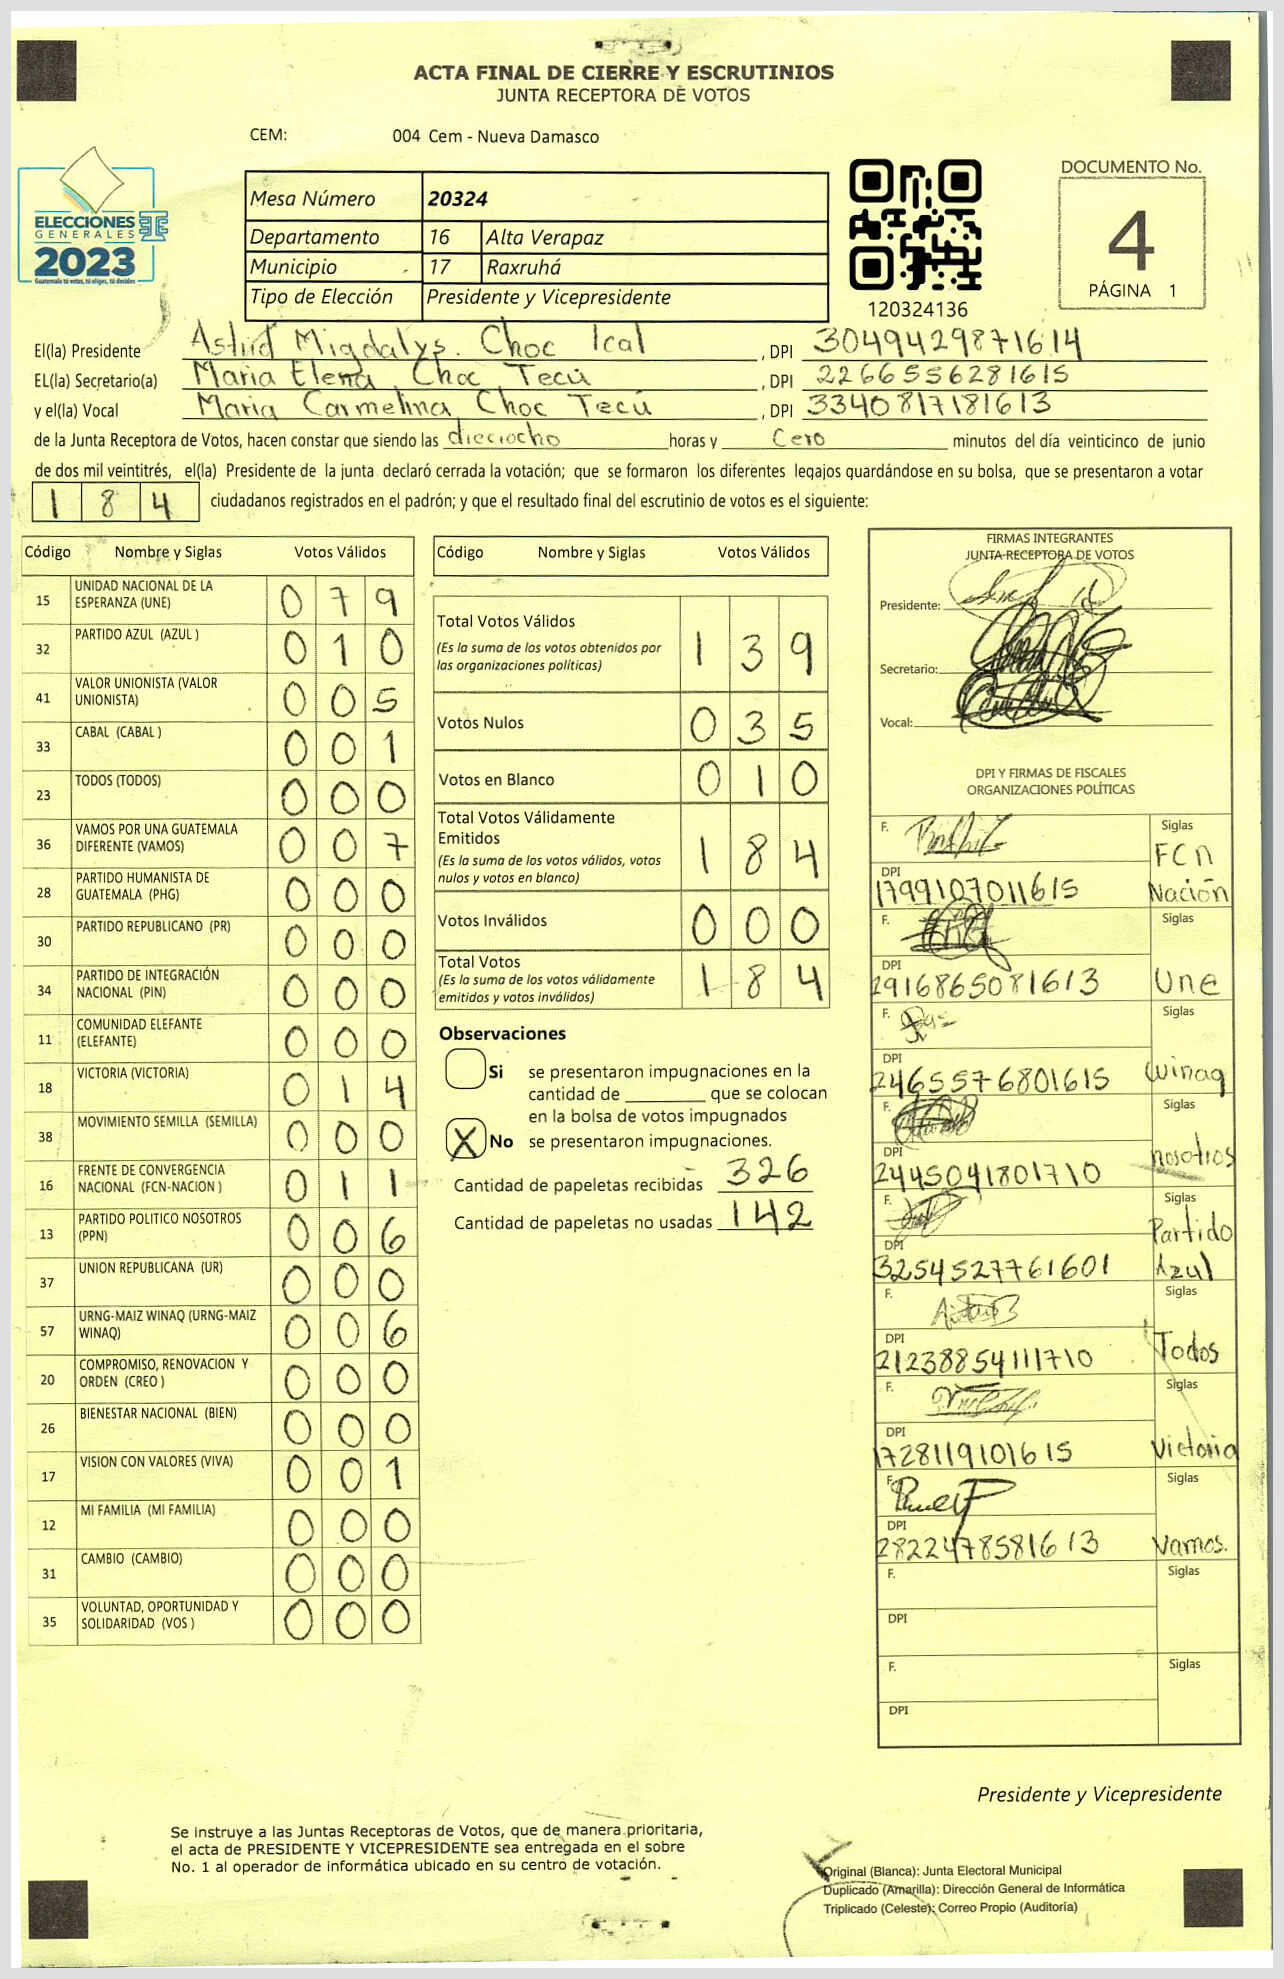 ACTA FINAL DE CIERRE Y ESCRUTINIOS
JUNTA RECEPTORA DE VOTOS
CEM: 004 Cem - Nueva Damasco
ELECCIONES
GENERALES
2023
Guatemala tú votas, tú eliges, tú decides
Mesa Número 20324
Departamento 16 Alta Verapaz
Municipio 17 Raxruhá
Tipo de Elección Presidente y Vicepresidente
120324136
DOCUMENTO No.
4
PÁGINA 1
El(la) Presidente Astrid Migdalys. Choc Ical , DPI 3049429871614
EL(la) Secretario(a) Maria Elena Choc Tecú , DPI 2266556281615
y el(la) Vocal Maria Carmelina Choc Tecú , DPI 3340817181613
de la Junta Receptora de Votos, hacen constar que siendo las dieciocho horas y Cero minutos del día veinticinco de junio
de dos mil veintitrés, el(la) Presidente de la junta declaró cerrada la votación; que se formaron los diferentes legajos guardándose en su bolsa, que se presentaron a votar
184 ciudadanos registrados en el padrón; y que el resultado final del escrutinio de votos es el siguiente:
Código Nombre y Siglas Votos Válidos
15 UNIDAD NACIONAL DE LA ESPERANZA (UNE) 079
32 PARTIDO AZUL (AZUL ) 010
41 VALOR UNIONISTA (VALOR UNIONISTA) 005
33 CABAL (CABAL ) 001
23 TODOS (TODOS) 000
36 VAMOS POR UNA GUATEMALA DIFERENTE (VAMOS) 007
28 PARTIDO HUMANISTA DE GUATEMALA (PHG) 000
30 PARTIDO REPUBLICANO (PR) 000
34 PARTIDO DE INTEGRACIÓN NACIONAL (PIN) 000
11 COMUNIDAD ELEFANTE (ELEFANTE) 000
18 VICTORIA (VICTORIA) 014
38 MOVIMIENTO SEMILLA (SEMILLA) 000
16 FRENTE DE CONVERGENCIA NACIONAL (FCN-NACION ) 011
13 PARTIDO POLITICO NOSOTROS (PPN) 006
37 UNION REPUBLICANA (UR) 000
57 URNG-MAIZ WINAQ (URNG-MAIZ WINAQ) 006
20 COMPROMISO, RENOVACION Y ORDEN (CREO ) 000
26 BIENESTAR NACIONAL (BIEN) 000
17 VISION CON VALORES (VIVA) 001
12 MI FAMILIA (MI FAMILIA) 000
31 CAMBIO (CAMBIO) 000
35 VOLUNTAD, OPORTUNIDAD Y SOLIDARIDAD (VOS ) 000
Código Nombre y Siglas Votos Válidos
Total Votos Válidos 139
(Es la suma de los votos obtenidos por
las organizaciones políticas)
Votos Nulos 035
Votos en Blanco 010
Total Votos Válidamente
Emitidos 184
(Es la suma de los votos válidos, votos
nulos y votos en blanco)
Votos Inválidos 000
Total Votos 184
(Es la suma de los votos válidamente
emitidos y votos inválidos)
Observaciones
Si se presentaron impugnaciones en la
cantidad de ________ que se colocan
en la bolsa de votos impugnados
X No se presentaron impugnaciones.
Cantidad de papeletas recibidas 326
Cantidad de papeletas no usadas 142
FIRMAS INTEGRANTES
JUNTA RECEPTORA DE VOTOS
Presidente:
Secretario:
Vocal:
DPI Y FIRMAS DE FISCALES
ORGANIZACIONES POLÍTICAS
F. Siglas
FCN
DPI
1799107011615 Nación
F. Siglas
DPI
2916865081613 Une
F. Siglas
DPI
2465576801615 Winaq
F. Siglas
DPI
2445041801710 nosotros
F. Siglas
Partido
DPI
3254527761601 Azul
F. Siglas
DPI
2123885411710 Todos
F. Siglas
DPI
1728119101615 Victoria
F. Siglas
DPI
2822478581613 Vamos.
F. Siglas
DPI
F. Siglas
DPI
Presidente y Vicepresidente
Se instruye a las Juntas Receptoras de Votos, que de manera prioritaria,
el acta de PRESIDENTE Y VICEPRESIDENTE sea entregada en el sobre
No. 1 al operador de informática ubicado en su centro de votación.
Original (Blanca): Junta Electoral Municipal
Duplicado (Amarilla): Dirección General de Informática
Triplicado (Celeste): Correo Propio (Auditoría)